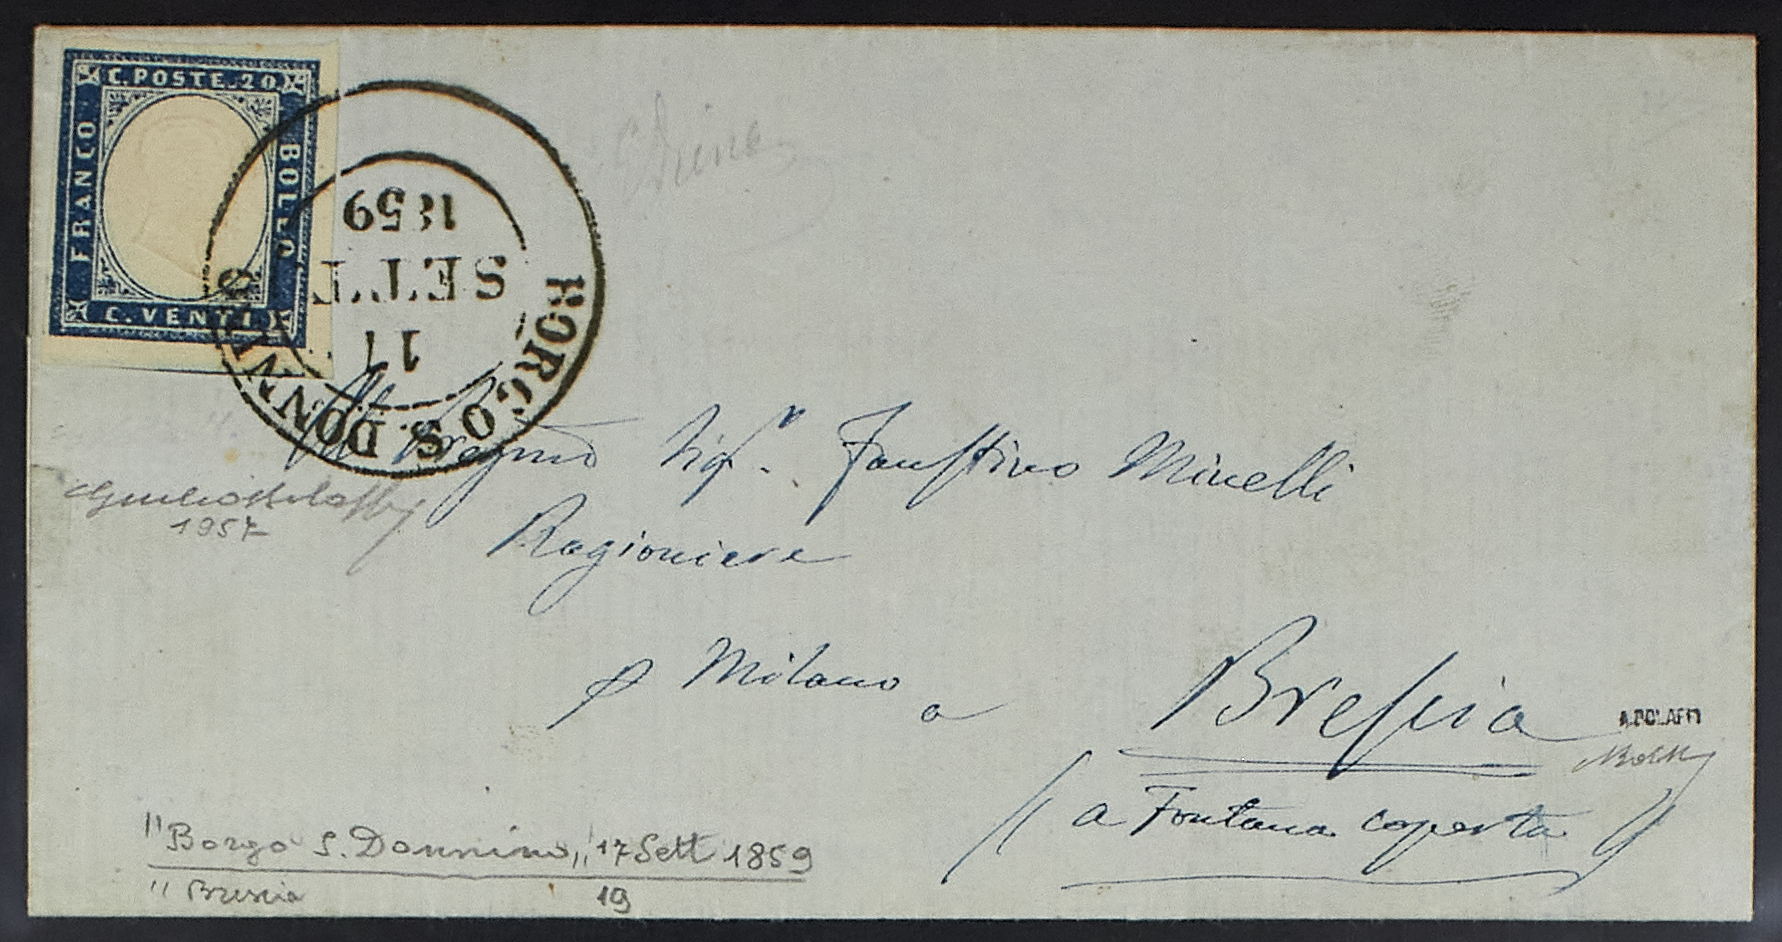 C. POSTE. 20
FRANCO
BOLLO
C. VENTI
BORGO S. DONNINO
17
SETT
1859
Sigr. Faustino Minelli
Ragioniere
p Milano
a Brescia
a Fontana coperta
1957
A. BOLAFFI
"Borgo S. Donnino,, 17 Sett 1859
" Brescia 19